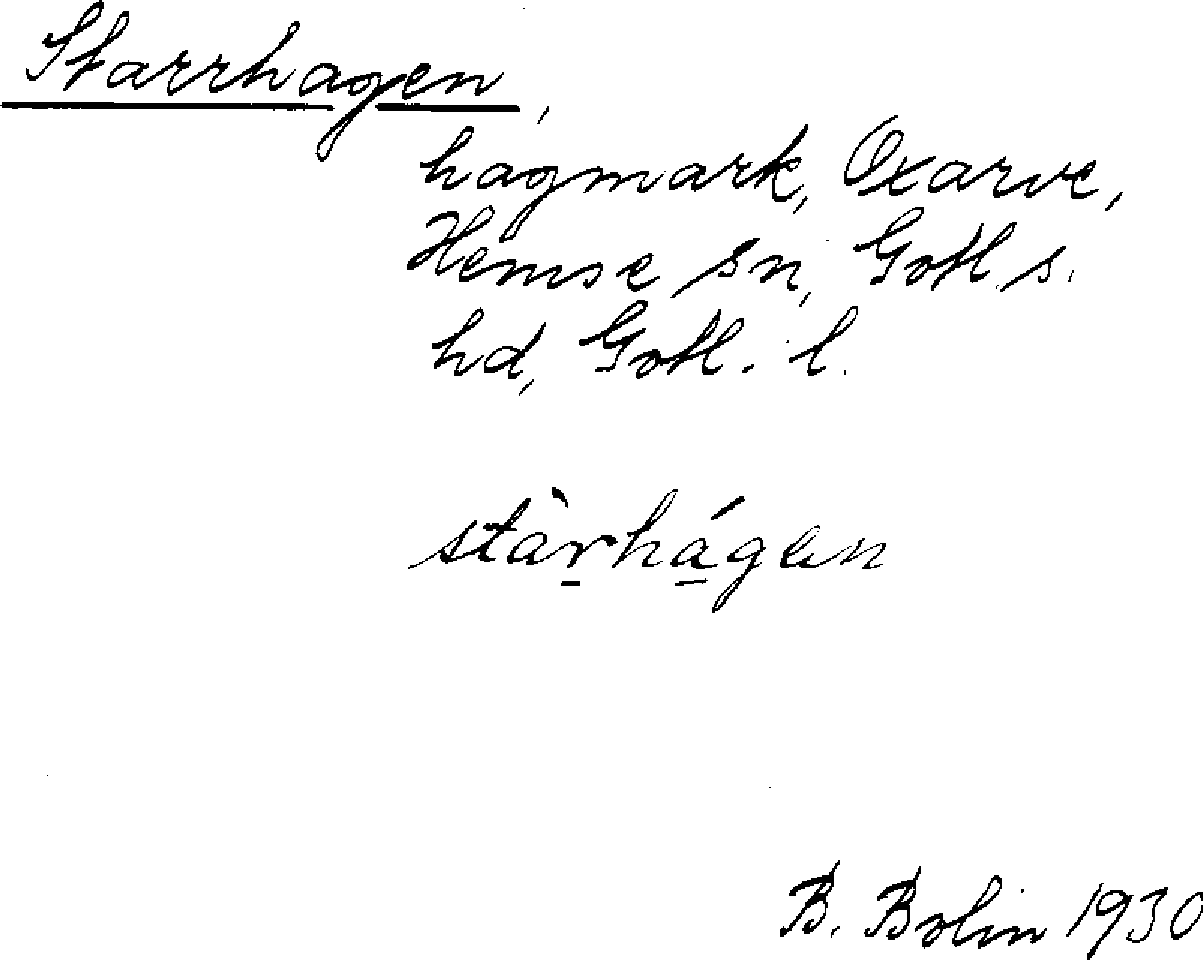 Starrhagen,
hagmark, Oxarve,
Hemse sn, Gotl. s.
hd, Gotl. l.
stàr̲há̲gen
B. Bolin 1930